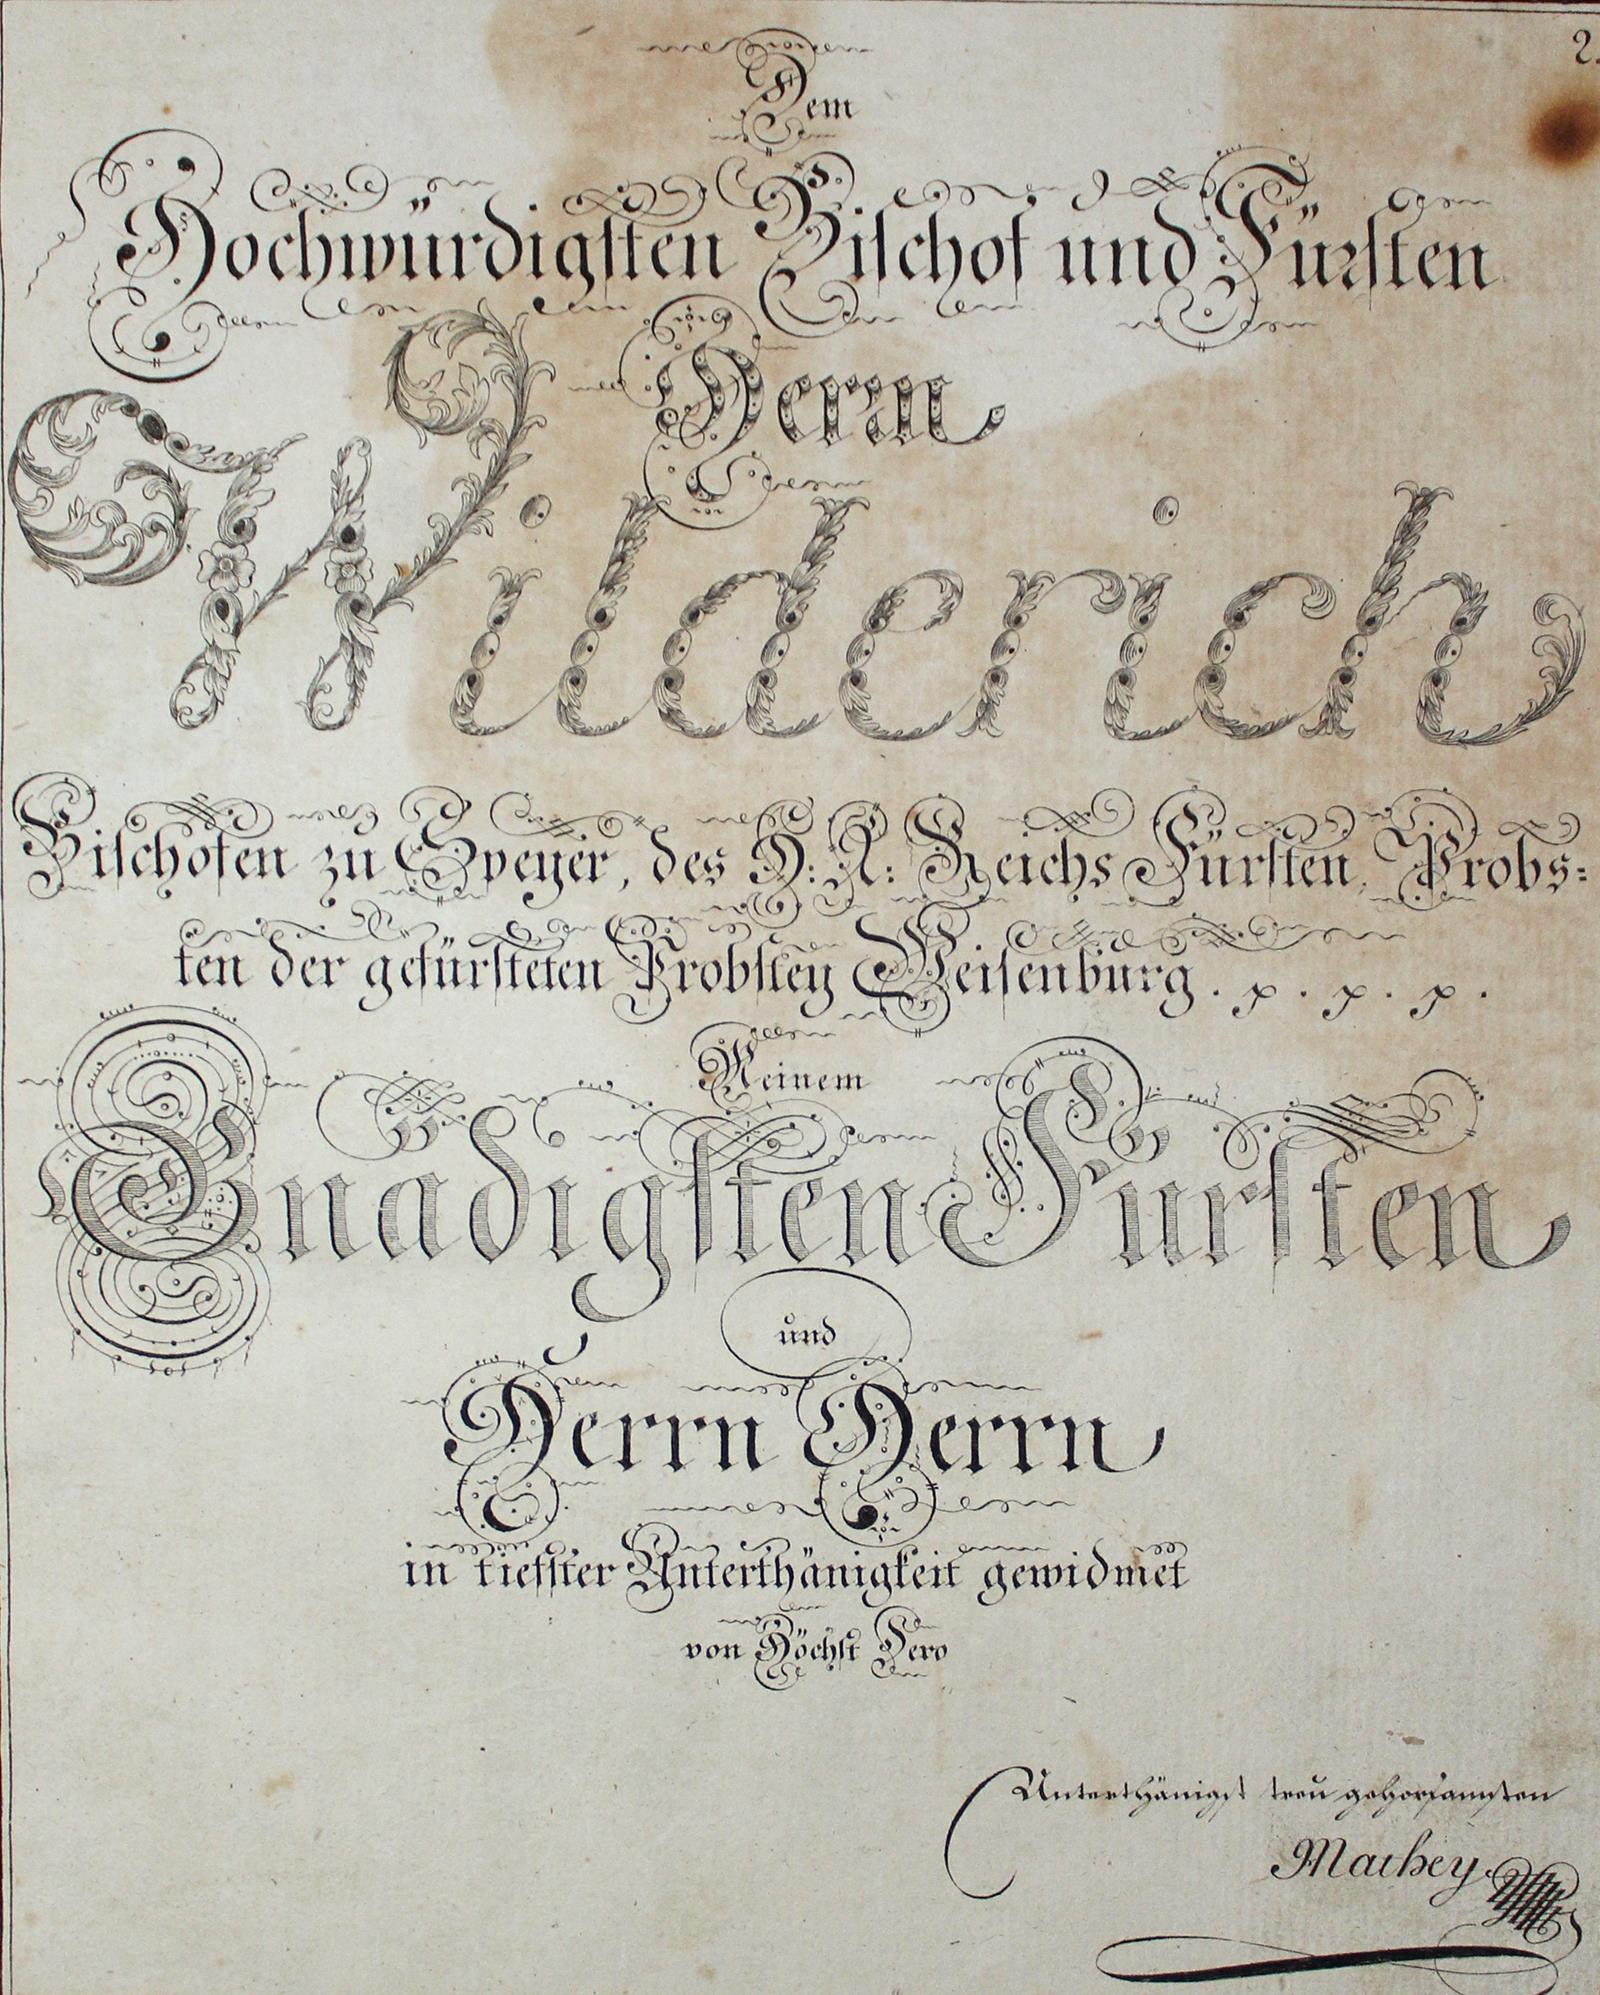 2.
Dem
Hochwürdigsten Bischof und Fürsten
Herrn
Wilderich
Bischofen zu Speyer, des H: R: Reichs Fürsten, Probs=
ten der gefürsteten Probstey Weisenburg. p. p. p.
Meinem
Gnädigsten Fürsten
und
Herrn Herrn
in tiefster Unterthänigkeit gewidmet
von Höchst Dero
Unterthänigst treu gehorsamsten
Machey